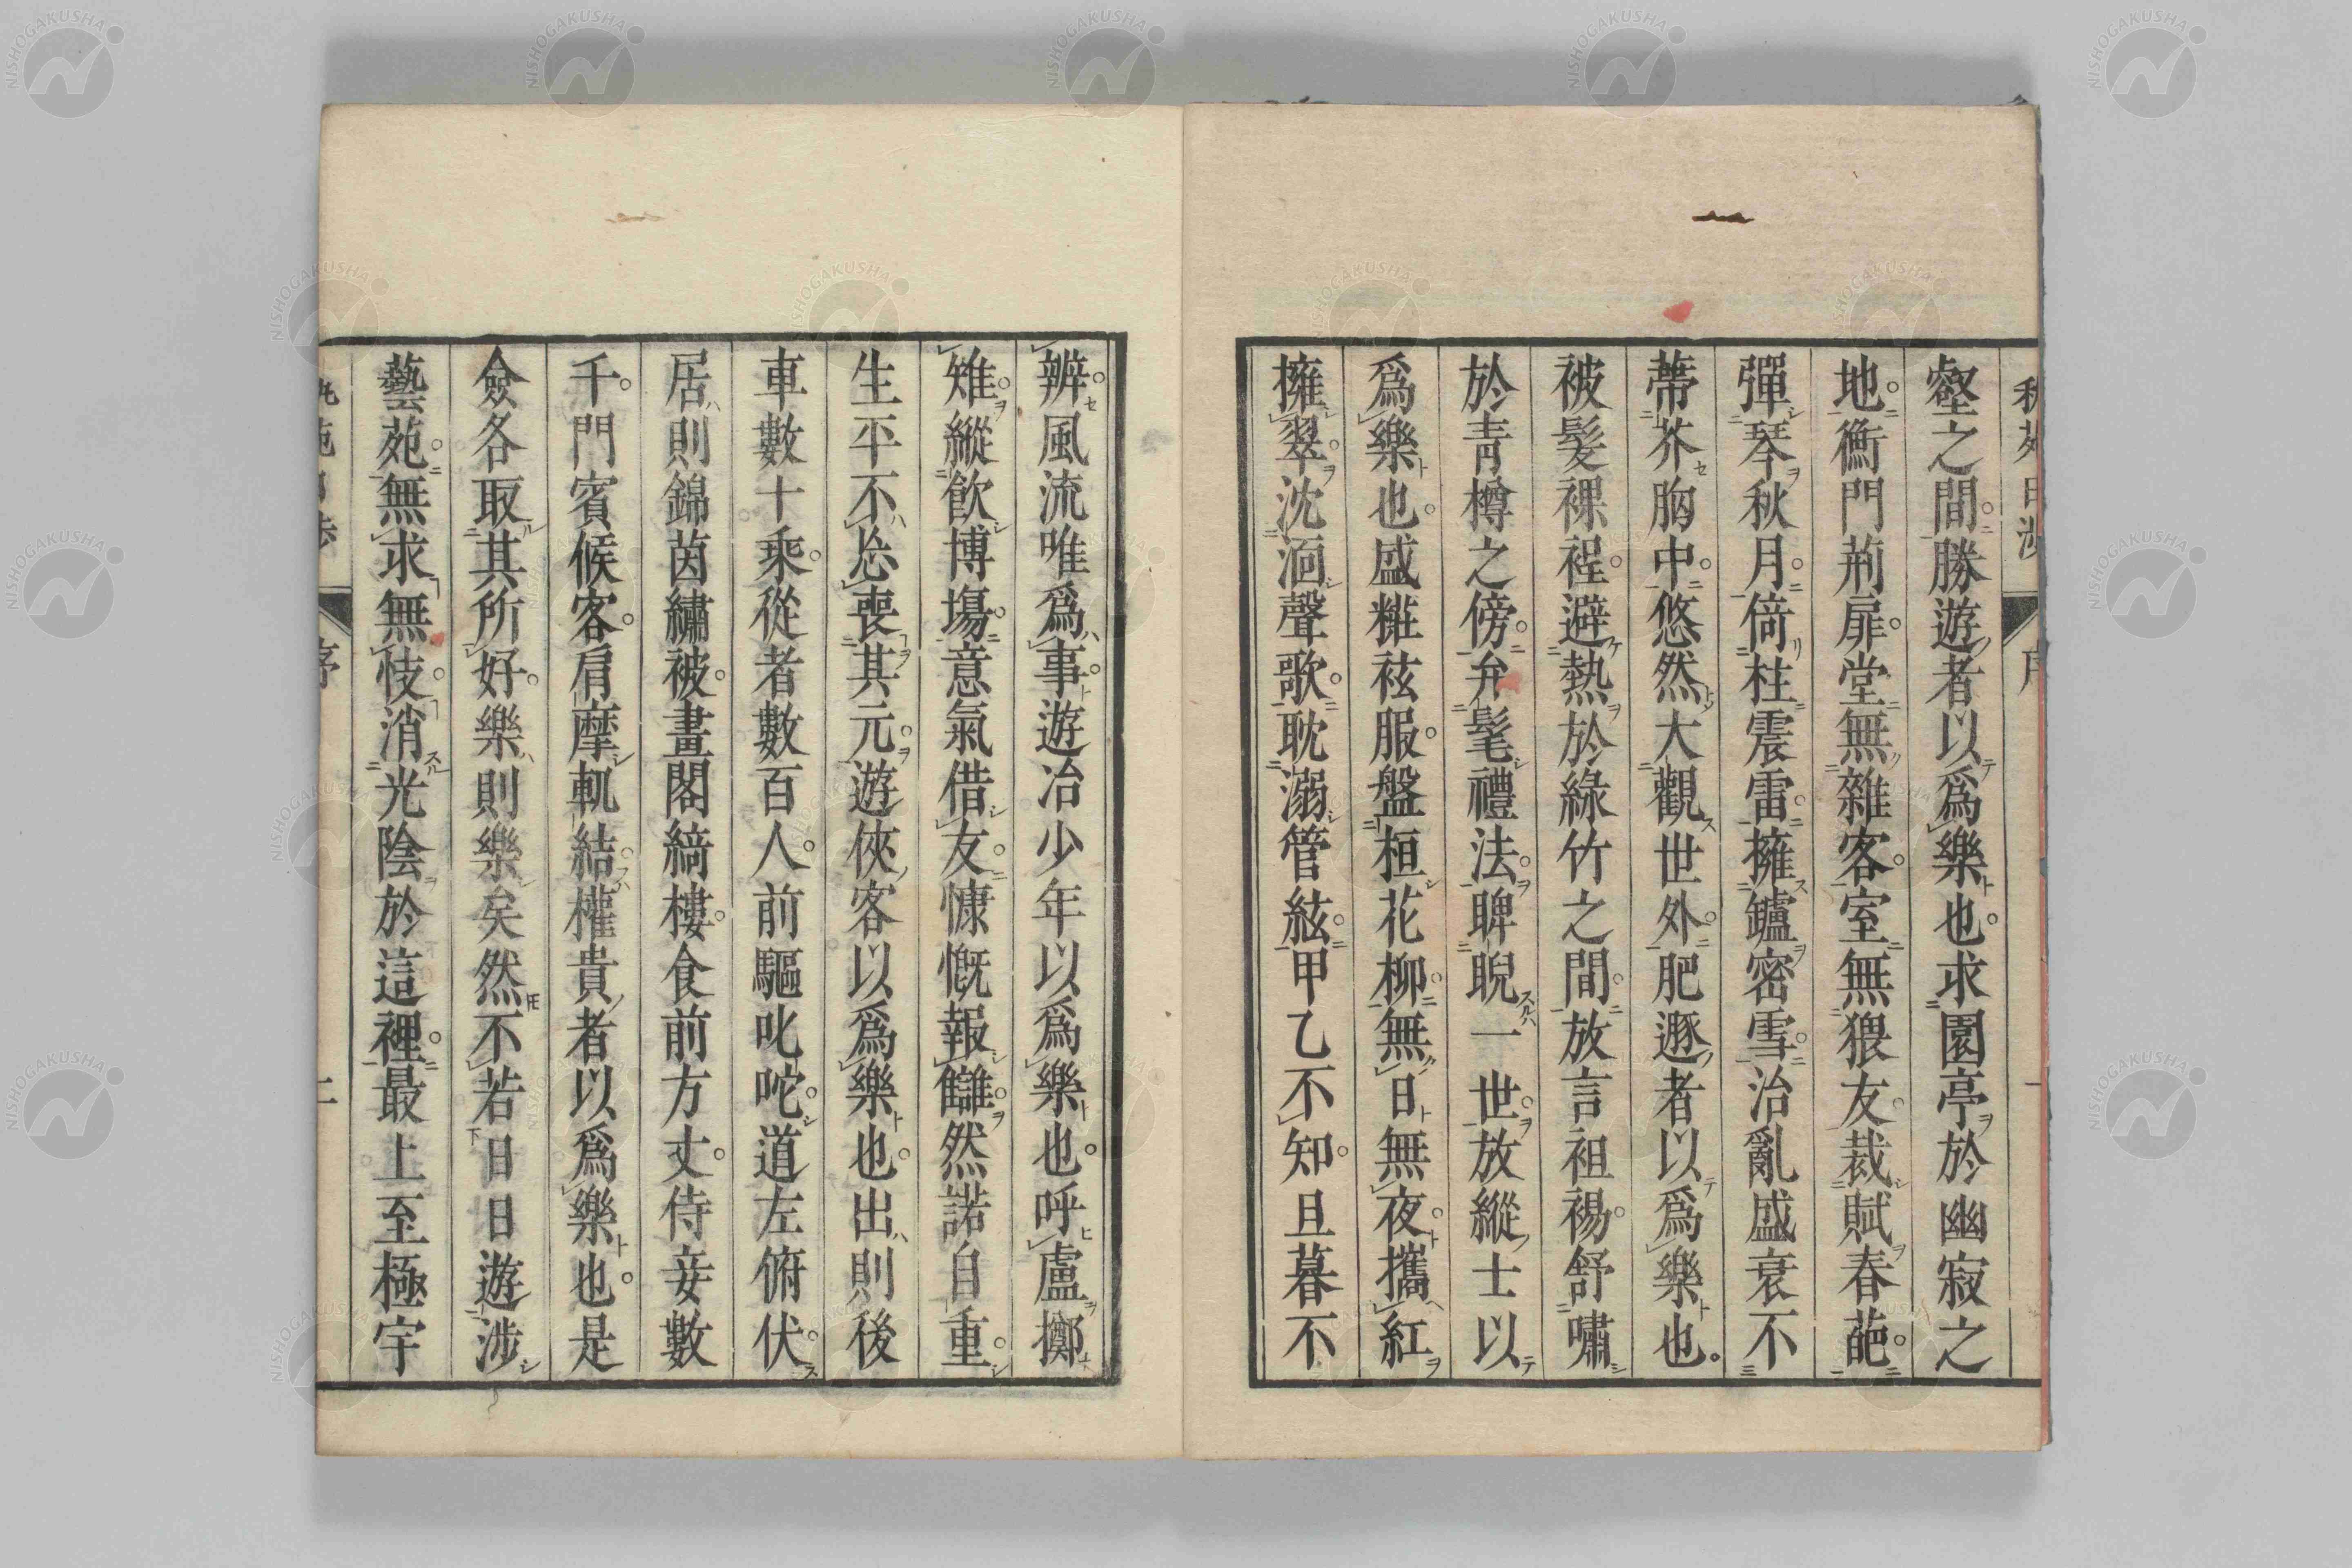 壑之間勝遊者以爲樂也求園亭於幽寂之
地衡門荊扉堂無雜客室無猥友裁賦春葩
彈琴秋月倚柱震雷擁鑪密雪治亂盛衰不
蔕芥胸中悠然大觀世外肥遯者以爲樂也
被髮裸裎避熱於綠竹之間放言袒裼舒嘯
於靑樽之傍弁髦禮法睥睨一世放縱士以
爲樂也盛糚袨服盤桓花柳無日無夜攜紅
擁翠沈湎聲歌耽溺管絃甲乙不知且暮不
辨風流唯爲事遊冶少年以爲樂也呼盧擲
雉縱飲博塲意氣借友慷慨報讎然諾自重
生平不忩喪其元遊俠客以爲樂也出則後
車數十乘從者數百人前驅叱咜道左俯伏
居則錦茵繡被畫閣綺樓食前方丈侍妾數
千門賓候客肩摩軌結權貴者以爲樂也是
僉各取其所好樂則樂矣然不若日日遊涉
藝苑無求無忮消光陰於這裡最上至極宇
序
二
NISHOGAKUSHA